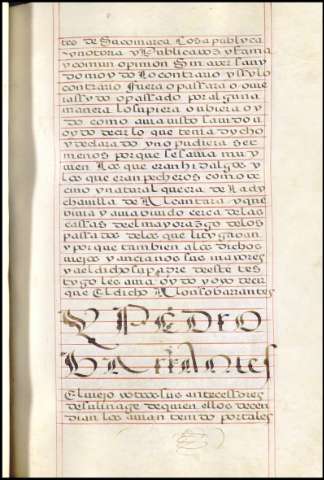 teo de Sacomarca Cosa publyca
y notoria y Publica voz y fama
y comun opinion Sin aver sany
do ny vydo Lo contrario y si lo
contrario fuera o passara o ouie
rassydo o passado por alguna
manera lo supiera o ubiera oy
do como aura visto sauido u
oydo decir lo que tenia dycho
y declarado y no pudiera ser
menos porque le sauia muy
vien Los que eran hidalgos y
los que eran pecheros como ve
cino y natural que era de La dy
cha villa de Alcantara y que
viuia y auia viuido cerca de las
cassas del mayorazgo de los
passados de los que litygauan
y porque tambien a los dichos
viejos y ancianos sus mayores
y a el dicho su padre de este tes
tygo les auia oydo y oyo decir
que El dicho Alonso barrantes
Y PEDRO
BARRAntes
El viejo y otros sus antecessores
de su linage de quien ellos decen
dian los auian tenido por tales